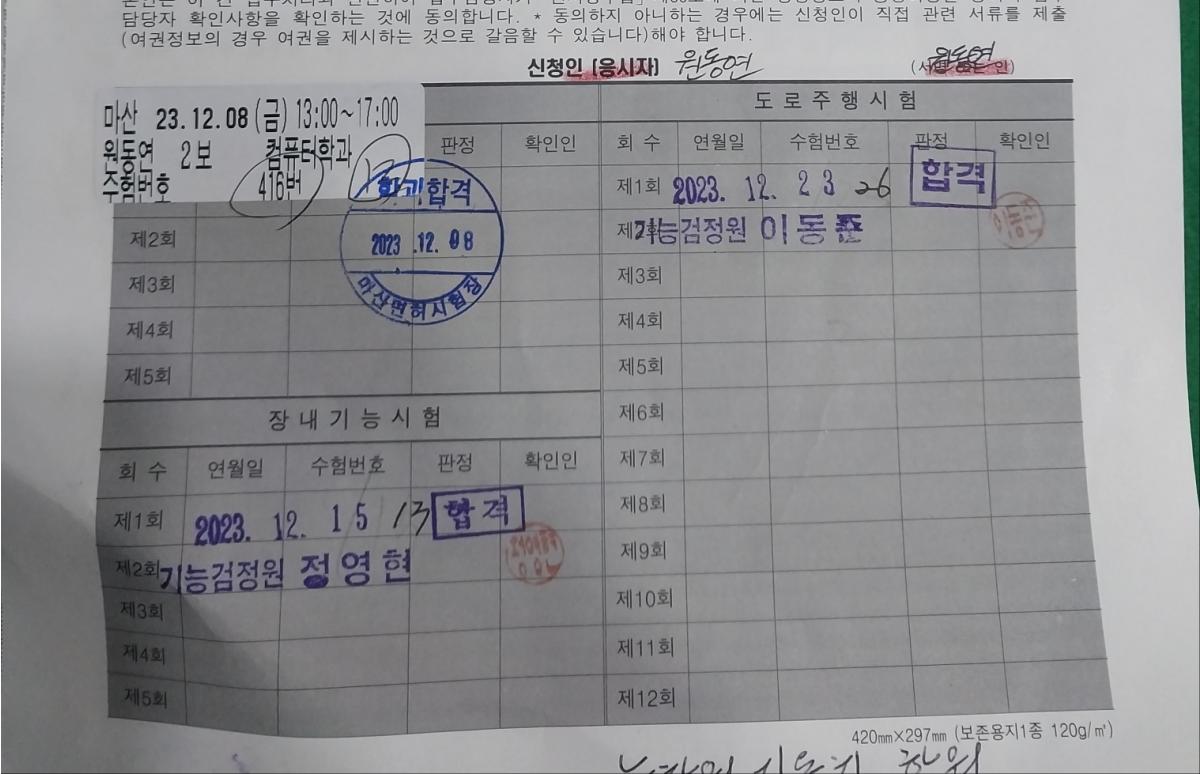 담당자 확인사항을 확인하는 것에 동의합니다. * 동의하지 아니하는 경우에는 신청인이 직접 관련 서류를 제출
(여권정보의 경우 여권을 제시하는 것으로 갈음할 수 있습니다)해야 합니다.
신청인 (응시자) 원동연 원동연 (서명 또는 인)
마산 23.12.08(금) 13:00~17:00
원동연 2보 컴퓨터학과
수험번호 416번
판정 확인인
학과합격
2023 .12. 08
마산면허시험장
제2회
제3회
제4회
제5회
장내기능시험
회 수 연월일 수험번호 판정 확인인
제1회 2023. 12. 15 13 합격
제2회 기능검정원 정영현
제3회
제4회
제5회
도로주행시험
회 수 연월일 수험번호 판정 확인인
제1회 2023. 12. 23 26 합격
제2회 기능검정원 이동준
제3회
제4회
제5회
제6회
제7회
제8회
제9회
제10회
제11회
제12회
420㎜×297㎜ (보존용지1종 120g/㎡)